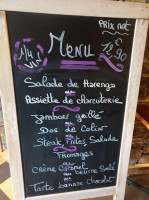 Prix net
Menu
12,50 €
Salade de Harengs
ou
Assiette de charcuterie
Jambon grillé
ou
Dos de Colin
ou
Steak Frites Salade
Fromages
ou
Crème Caramel
ou
Tarte Banane Chocolat